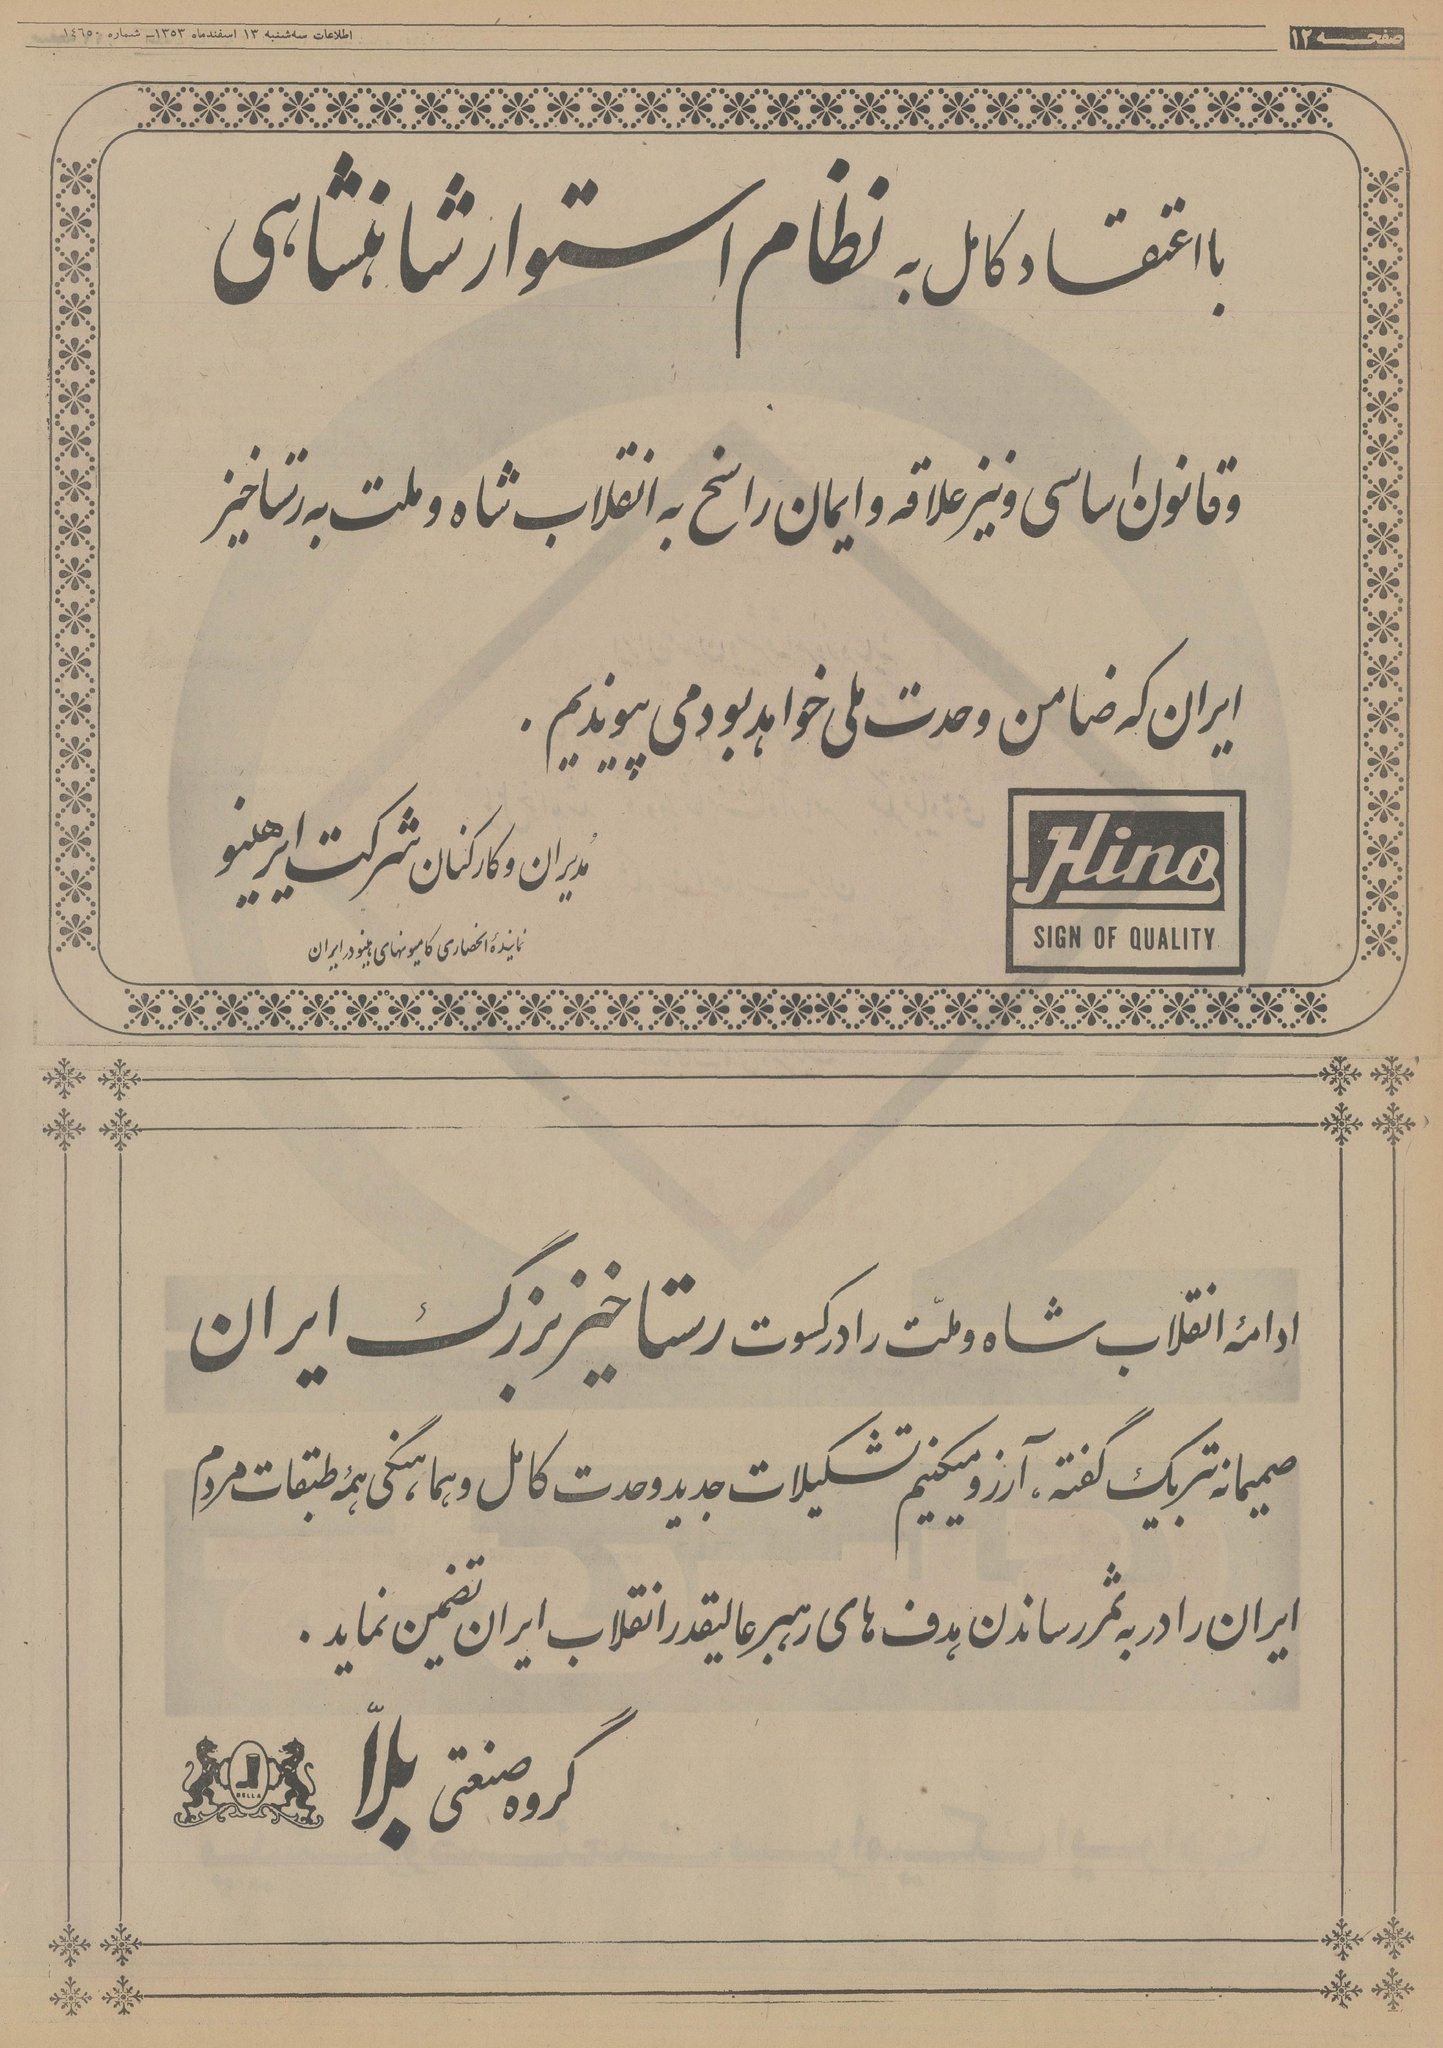 صفحه ۱۲
اطلاعات سه‌شنبه ۱۳ اسفندماه ۱۳۵۳ـ شماره ۱۴۶۵۰
با اعتقاد کامل به نظام استوار شاهنشاهی
و قانون اساسی و نیز علاقه و ایمان راسخ به انقلاب شاه و ملت به رستاخیز
ایران که ضامن وحدت ملی خواهد بود می پیوندیم .
Hino
SIGN OF QUALITY
مُدیران و کارکنان شرکت ایرهینو
نمایندهٔ انحصاری کامیونهای هینو در ایران
ادامهٔ انقلاب شاه و ملّت را در کسوت رستاخیز بزرگ ایران
صمیمانه تبریک گفته ، آرزو میکنیم تشکیلات جدید وحدت کامل و هماهنگی همهٔ طبقات مردم
ایران را در به ثمر رساندن هدف های رهبر عالیقدر انقلاب ایران تضمین نماید .
گروه صنعتی بلاّ
BELLA